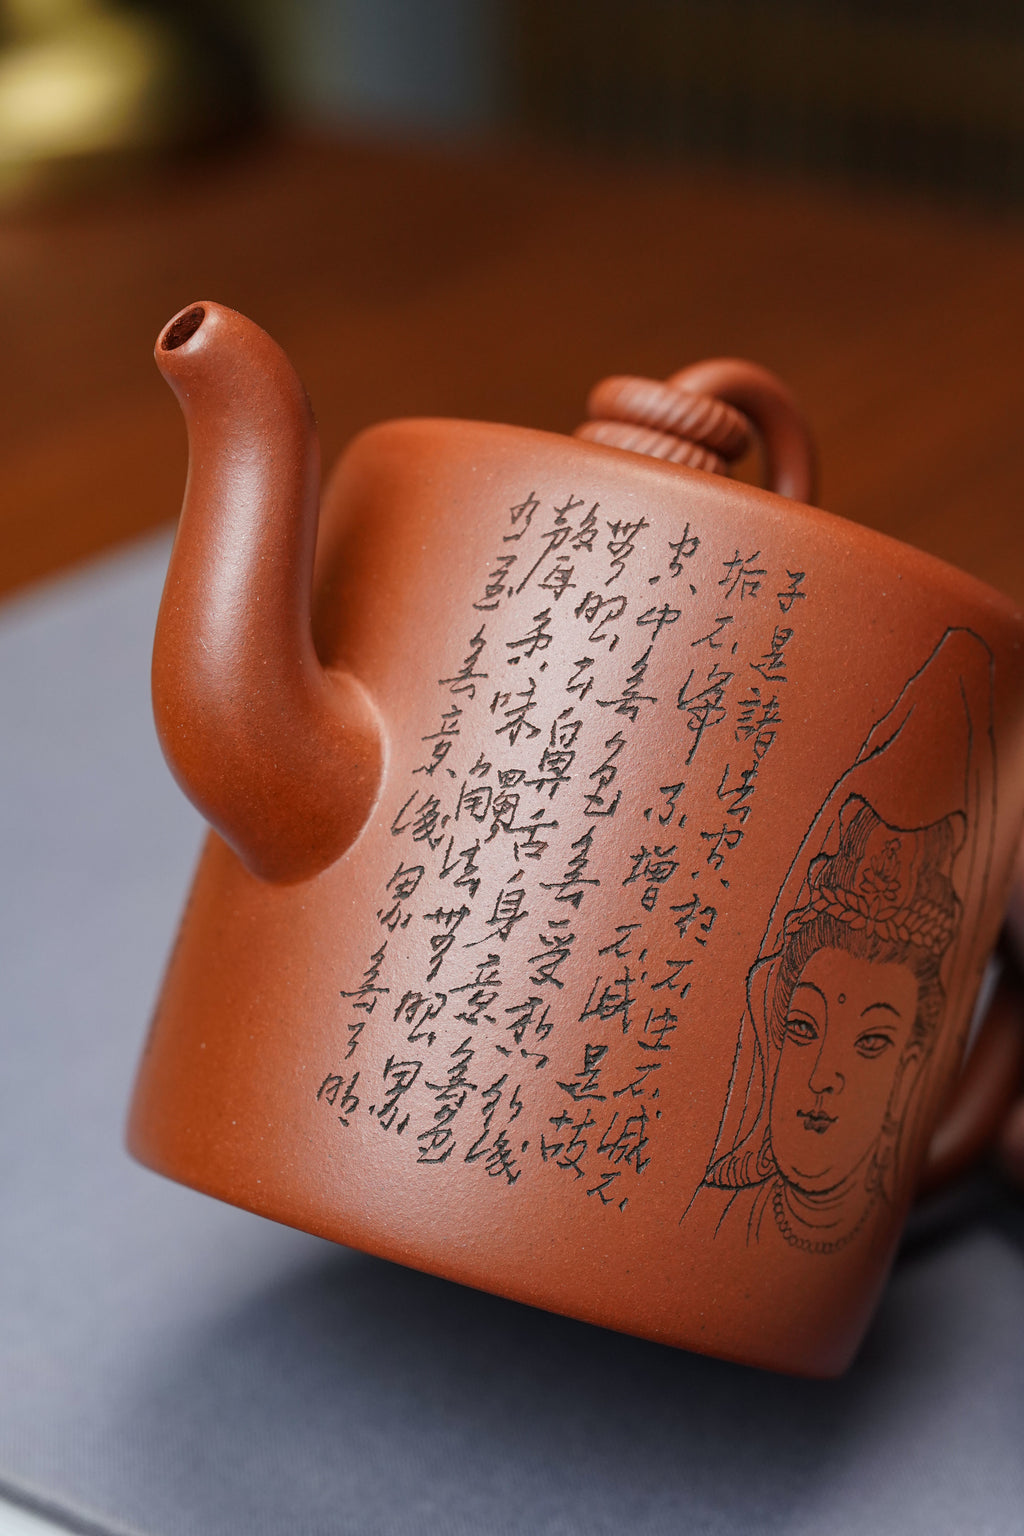 子是諸法空相不生不滅不
垢不淨不增不減是故
空中無色無受想行識
無眼耳鼻舌身意無色
聲香味觸法無眼界
乃至無意識界無々明